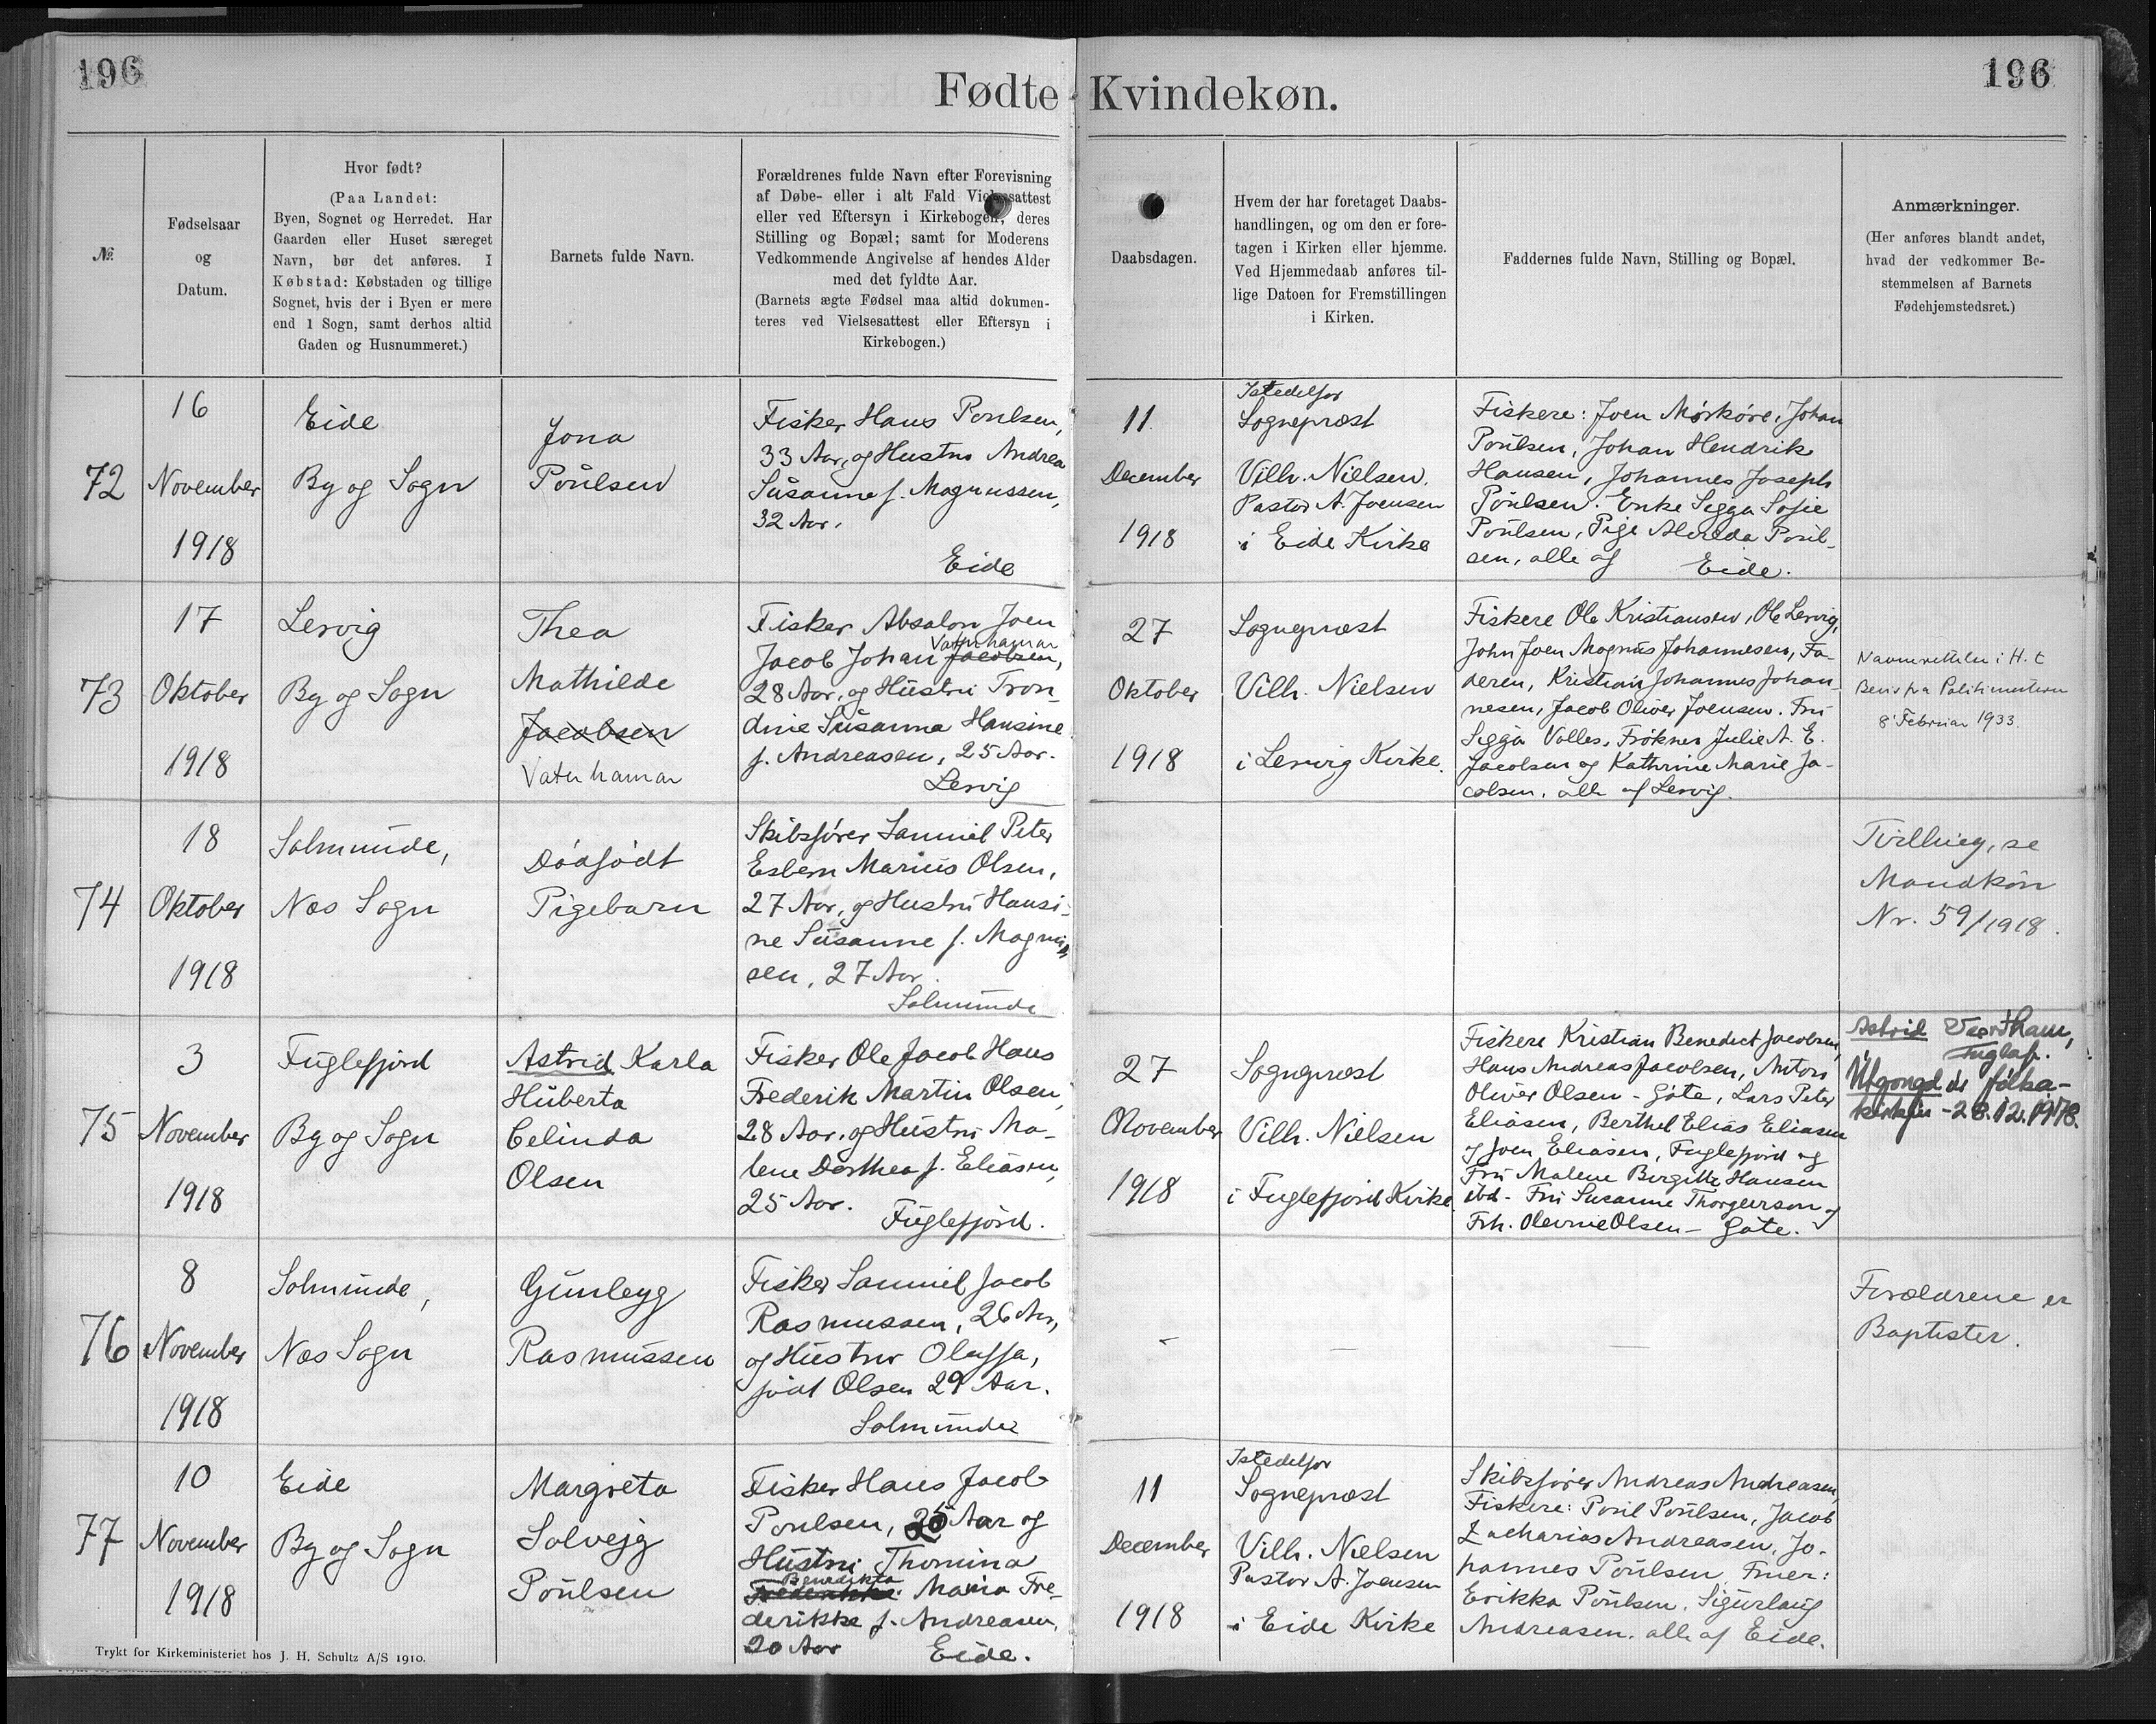 196
Fødte Kvindekøn.
196
№
Fødselsaar
og
Datum.
Hvor født?
(Paa Landet:
Byen, Sognet og Herredet. Har
Gaarden eller Huset særeget
Navn, bør det anføres. I
Købstad: Købstaden og tillige
Sognet, hvis der i Byen er mere
end 1 Sogn, samt derhos altid
Gaden og Husnummeret.)
Barnets fulde Navn.
Forældrenes fulde Navn efter Forevisning
af Døbe- eller i alt Fald Vielsesattest
eller ved Eftersyn i Kirkebogen, deres
Stilling og Bopæl; samt for Moderens
Vedkommende Angivelse af hendes Alder
med det fyldte Aar.
(Barnets ægte Fødsel maa altid dokumen-
teres ved Vielsesattest eller Eftersyn i
Kirkebogen.)
Daabsdagen.
Hvem der har foretaget Daabs-
handlingen, og om den er fore-
tagen i Kirken eller hjemme.
Ved Hjemmedaab anføres til-
lige Datoen for Fremstillingen
i Kirken.
Faddernes fulde Navn, Stilling og Bopæl.
Anmærkninger.
(Her anføres blandt andet,
hvad der vedkommer Be-
stemmelsen af Barnets
Fødehjemstedsret.)
72
16
November
1918
Eide
By og Sogn
Jona
Poulsen
Fisker Hans Poulsen,
33 Aar, og Hustru Andrea
Susanne f. Magnussen,
32 Aar.
Eide
11.
December
1918
Istedetfor
Sognepræst
Vilh. Nielsen.
Pastor A. Joensen
i Eide Kirke
Fiskere: Joen Mørkøre, Johan
Poulsen, Johan Hendrik
Hansen, Johannes Joseph
Poulsen. Enke Sigga Sofie
Poulsen, Pige Alvilda Poul-
sen, alle af Eide.
73
17
Oktober
1918
Lervig
By og Sogn
Thea
Mathilde
Jacobsen
Vatnhamar
Fisker Absalon Joen
Vatnhamar
Jacob Johan Jacobsen,
28 Aar, og Hustru Tron-
dine Susanna Hansine
f. Andreasen, 25 Aar.
Lervig
27
Oktober
1918
Sognepræst
Vilh. Nielsen
i Lervig Kirke.
Fiskere Ole Kristiansen, Ole Lervig,
John Joen Magnus Johannesen, Fa-
deren, Kristian Johannes Johan-
nesen, Jacob Oliver Joensen. Fru
Sigga Volles, Frøkner Julie A. E.
Jacobsen og Kathrine Marie Ja-
cobsen, alle af Lervig.
Navnerettelse i H. t
Bevis fra Politimesteren
8' Februar 1933.
74
18
Oktober
1918
Solmunde,
Næs Sogn
Dødfødt
Pigebarn
Skibsfører Samuel Peter
Esbern Marius Olsen,
27 Aar, og Hustru Hansi-
ne Susanne f. Magnus
sen, 27 Aar.
Solmunde
Tvilling, se
Mandkøn
Nr. 59/1918.
75
3
November
1918
Fuglefjord
By og Sogn
Astrid Karla
Huberta
Celinda
Olsen
Fisker Ole Jacob Hans
Frederik Martin Olsen,
28 Aar, og Hustru Ma-
lene Dorthea f. Eliasen,
25 Aar. Fuglefjord.
27
November
1918
Sognepræst
Vilh. Nielsen
i Fuglefjord Kirke.
Fiskere Kristian Benedict Jacobsen,
Hans Andreas Jacobsen, Anton
Oliver Olsen - Gøte, Lars Peter
Eliasen, Berthel Elias Eliasen
og Joen Eliasen, Fuglefjord og
Fru Malene Birgitte Hansen
ibd - Fru Susanne Thorgeirson og
Frk. Olevine Olsen - Gøte.
Astrid
Fuglaf.
Útgongd úr fólka-
kirkjuni - 28.12.1978.
76
8
November
1918
Solmunde,
Næs Sogn
Gunleyg
Rasmussen
Fisker Samuel Jacob
Rasmussen, 26 Aar,
og Hustru Oluffa,
født Olsen 29 Aar.
Solmunde
-
—
—
Forældrene er
Baptister.
77
10
November
1918
Eide
By og Sogn
Margreta
Solvejg
Poulsen
Fisker Hans Jacob
Poulsen, 25 Aar og
Hustru Thomina
Benedikta
Frederikke Maria Fre-
derikke f. Andreasen,
20 Aar Eide.
11
December
1918
Istedetfor
Sognepræst
Vilh. Nielsen
Pastor A. Joensen
i Eide Kirke
Skibsfører Andreas Andreasen,
Fiskere: Poul Poulsen, Jacob
Zacharias Andreasen, Jo-
hannes Poulsen, Fruer:
Erikka Poulsen, Sigurlaug
Andreasen, alle af Eide.
Trykt for Kirkeministeriet hos J. H. Schultz A/S 1910.